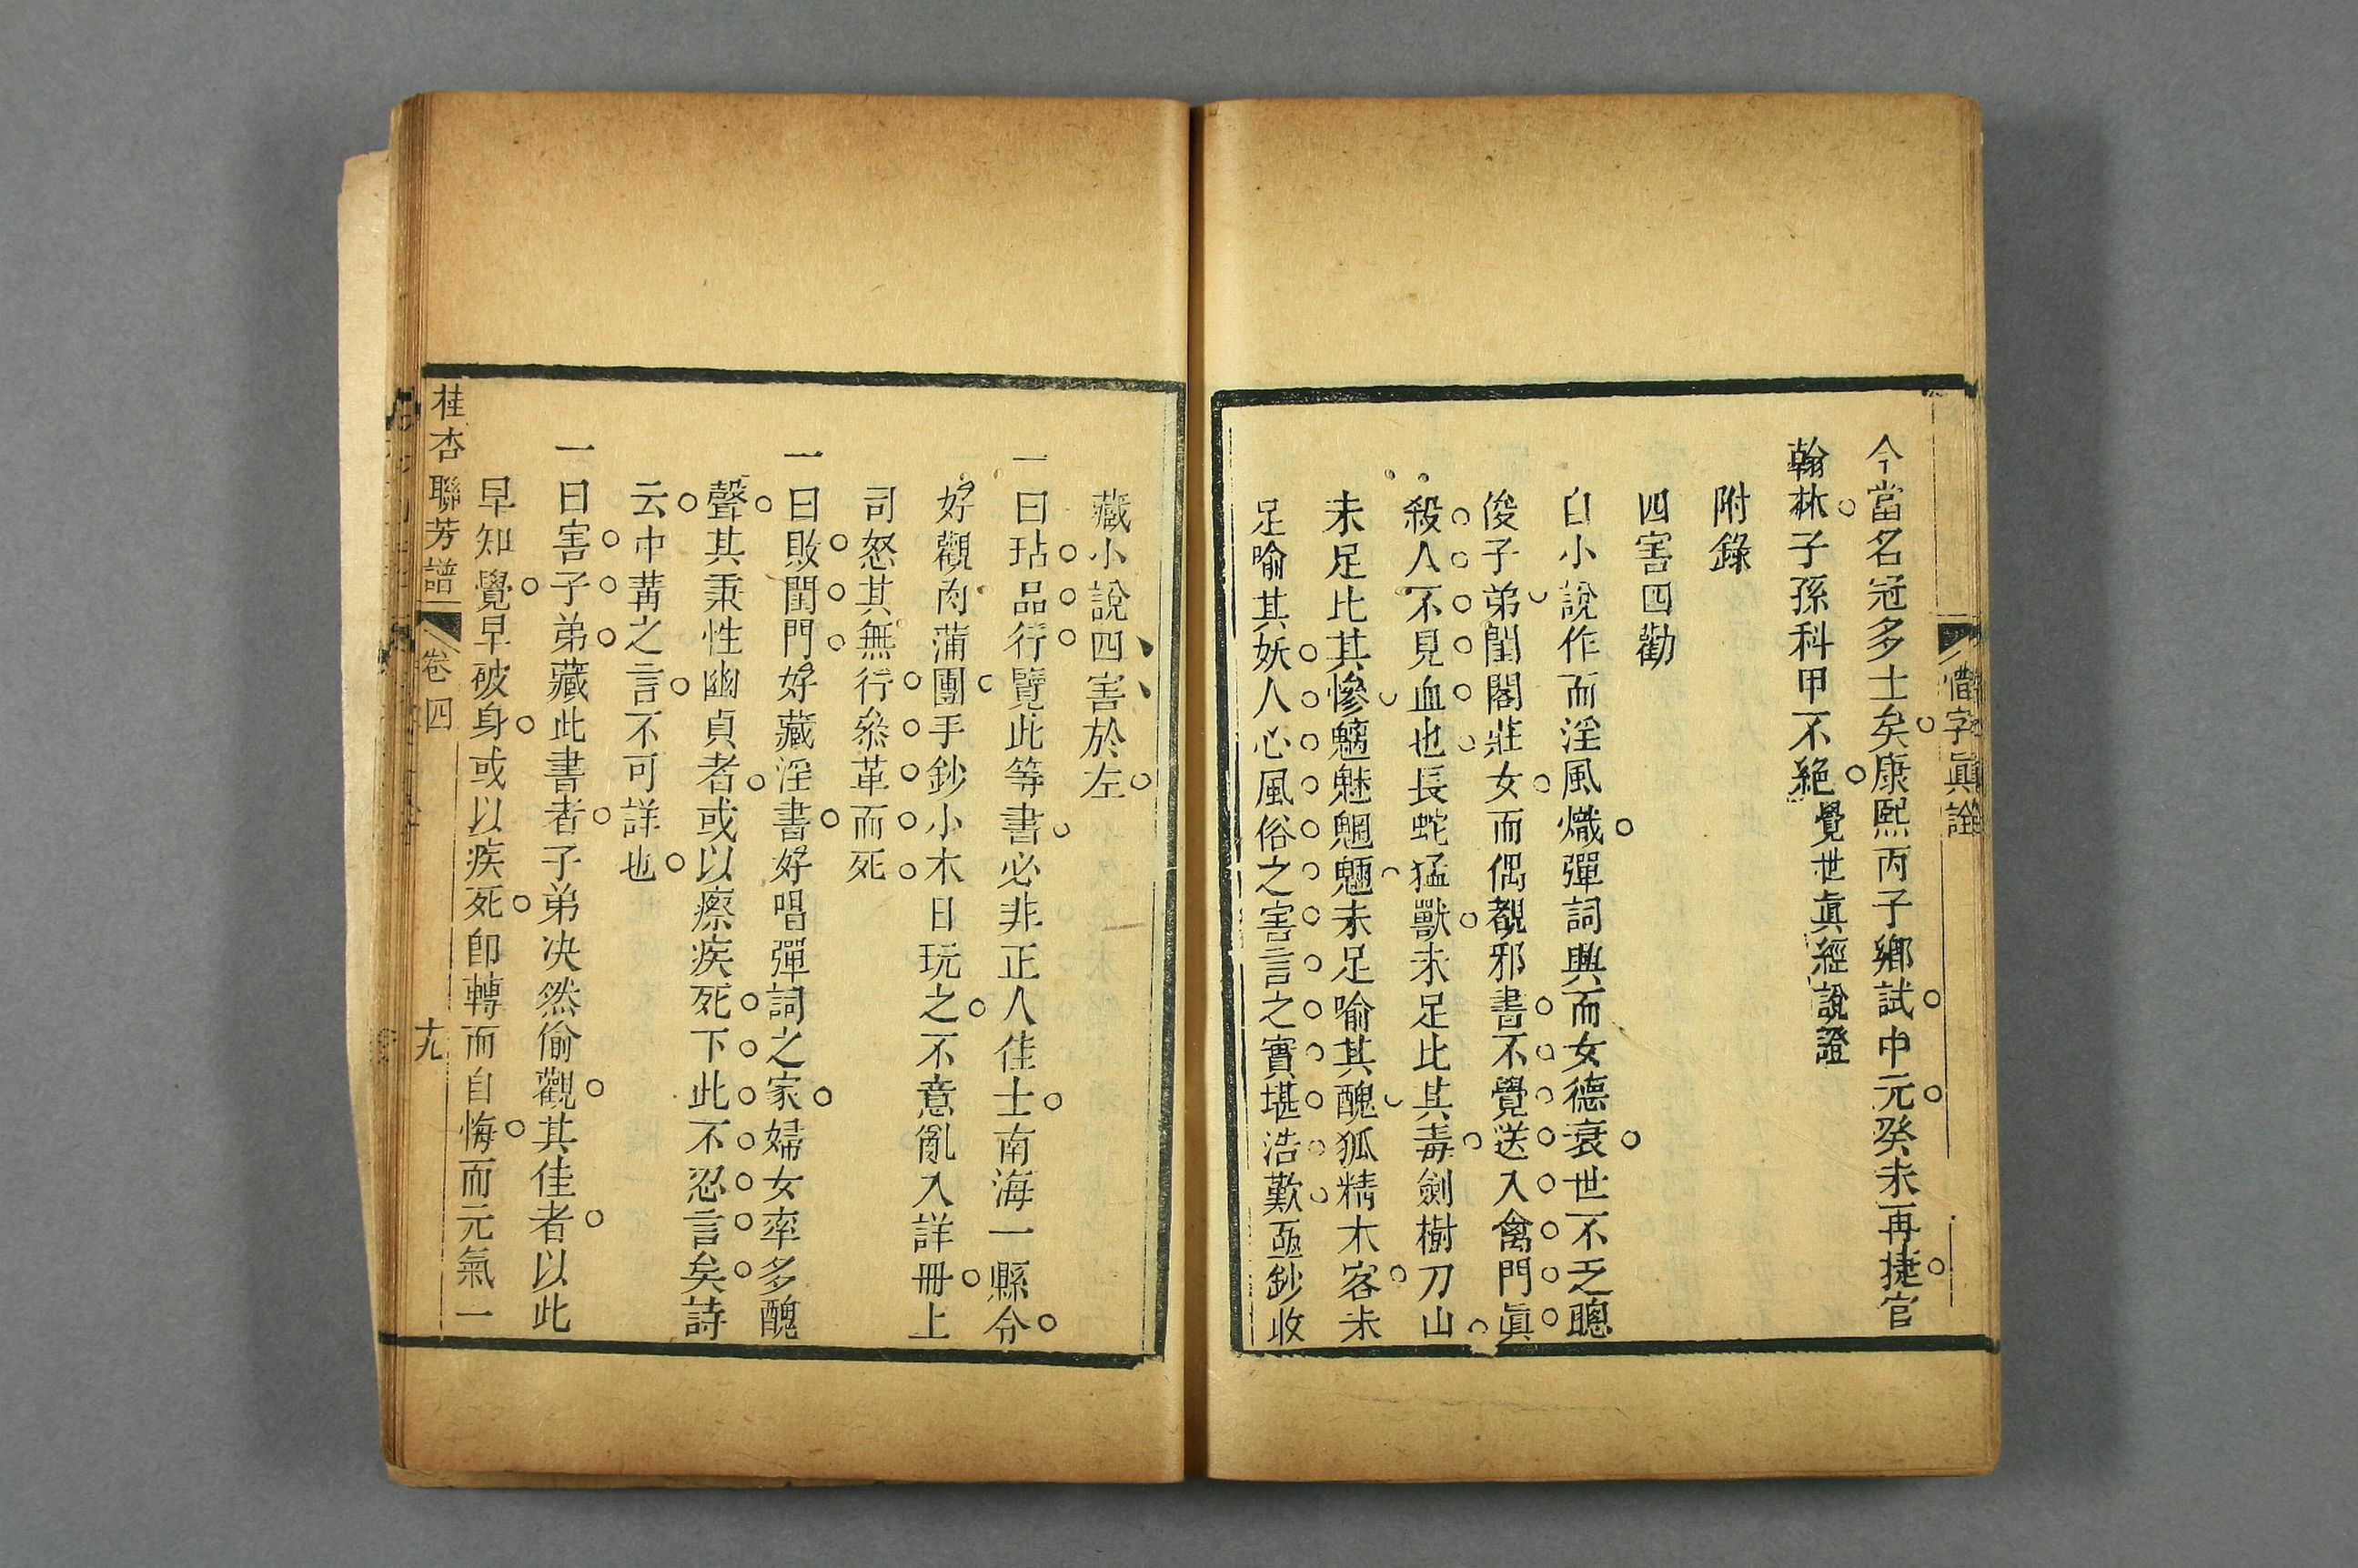 惜字眞詮
今當名冠多士矣康熙丙子鄉試中元癸未再捷官
翰林子孫科甲不絕覺世眞經說證
附錄
四害四勸
自小說作而淫風熾彈詞興而女德衰世不乏聰
俊子弟閨閣莊女而偶覩邪書不覺送入禽門眞
殺人不見血也長蛇猛獸未足比其毒劍樹刀山
未足比其慘魑魅魍魎未足喻其醜狐精木客未
足喻其妖人心風俗之害言之實堪浩歎亟鈔收
藏小說四害於左
一曰玷品行覽此等書必非正人佳士南海一縣令
好觀肉蒲團手鈔小本日玩之不意亂入詳冊上
司怒其無行叅革而死
一曰敗閨門好藏淫書好唱彈詞之家婦女率多醜
聲其秉性幽貞者或以瘵疾死下此不忍言矣詩
云中冓之言不可詳也
一曰害子弟藏此書者子弟决然偷觀其佳者以此
早知覺早破身或以疾死卽轉而自悔而元氣一
桂杏聯芳譜
卷四
十九